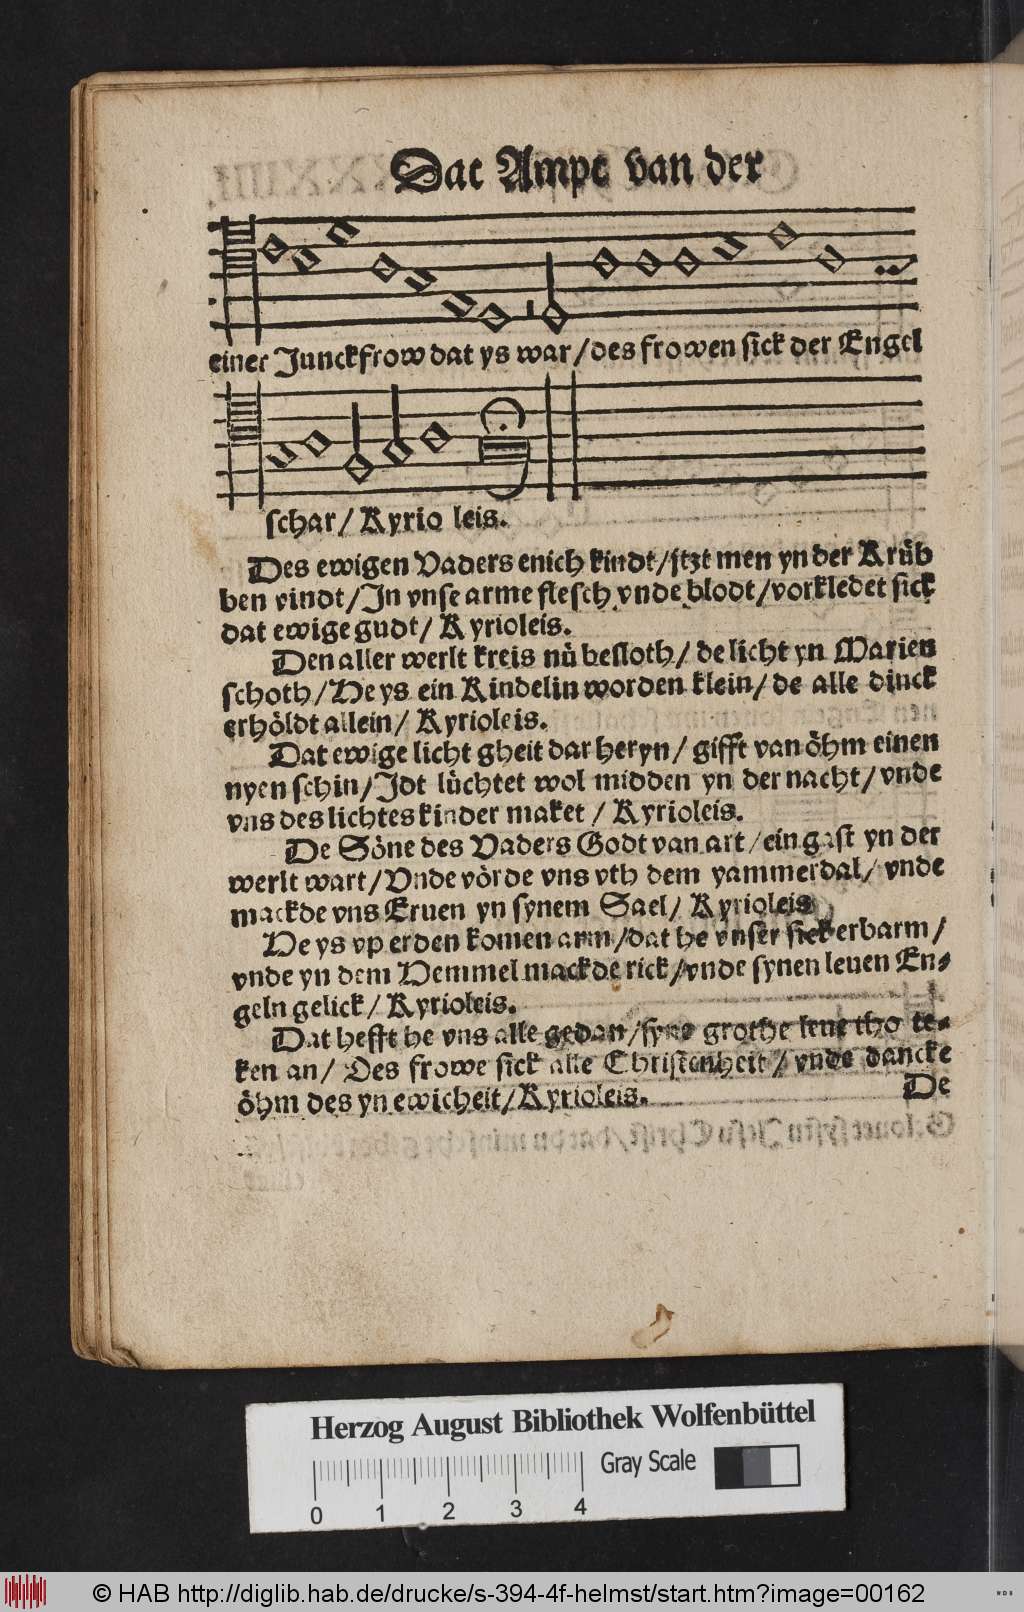 Dat Ampt van der
einer Junckfrow dat ys war / des frowen sick der Engel
schar / Kyrio leis.
Des ewigen Vaders enich kindt / jtzt men yn der Krüb
ben vindt / In vnse arme flesch vnde blodt / vorkledet sick
dat ewige gudt / Kyrioleis.
Den aller werlt kreis nü besloth / de licht yn Marien
schoth / He ys ein Kindelin worden klein / de alle dinck
erhöldt allein / Kyrioleis.
Dat ewige licht gheit dar heryn / gifft van öhm einen
nyen schin / Idt lüchtet wol midden yn der nacht / vnde
vns des lichtes kinder maket / Kyrioleis.
De Söne des Vaders Godt van art / ein gast yn der
werlt wart / Vnde vörde vns vth dem yammerdal / vnde
mackde vns Eruen yn synem Sael / Kyrioleis
He ys vp erden komen arm / dat he vnser sick erbarm /
vnde yn dem Hemmel mackde rick / vnde synen leuen En⸗
geln gelick / Kyrioleis.
Dat hefft he vns alle gedan / syne grothe leue tho te⸗
ken an / Des frowe sick alle Christenheit / vnde dancke
öhm des yn ewicheit / Kyrioleis.
De
Herzog August Bibliothek Wolfenbüttel
Gray Scale
0 1 2 3 4
© HAB http://diglib.hab.de/drucke/s-394-4f-helmst/start.htm?image=00162